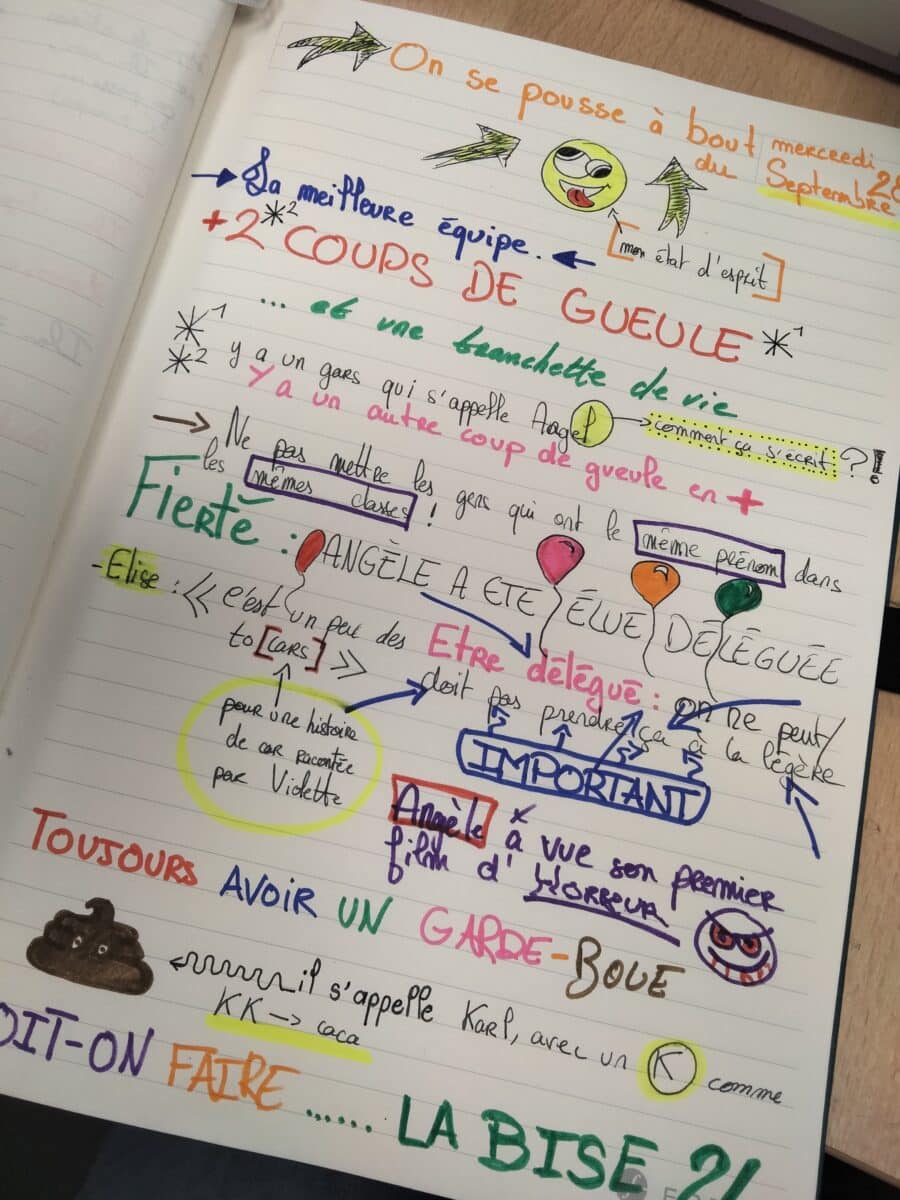 On se pousse à bout
mercredi 28
du Septembre
La meilleure équipe.
[mon état d'esprit]
+2*² COUPS DE GUEULE *¹
... et une tranchette de vie
*¹
*² y a un gars qui s'appelle Angel → comment ça s'écrit ?!
Y a un autre coup de gueule en +
→ Ne pas mettre les gens qui ont le même prénom dans
les mêmes classes !
Fierté : ANGÈLE A ETE ÉLUE DÉLÉGUÉE
- Elise : « c'est un peu des
to [cars] »
Etre délégué : on ne peut/
doit pas prendre ça à la légère
IMPORTANT
pour une histoire
de car racontée
par Violette
Angèle à vue son premier
film d'HORREUR
TOUJOURS AVOIR UN GARDE-BOUE
il s'appelle Karl, avec un K comme
KK → caca
OIT-ON FAIRE ...... LA BISE ?!